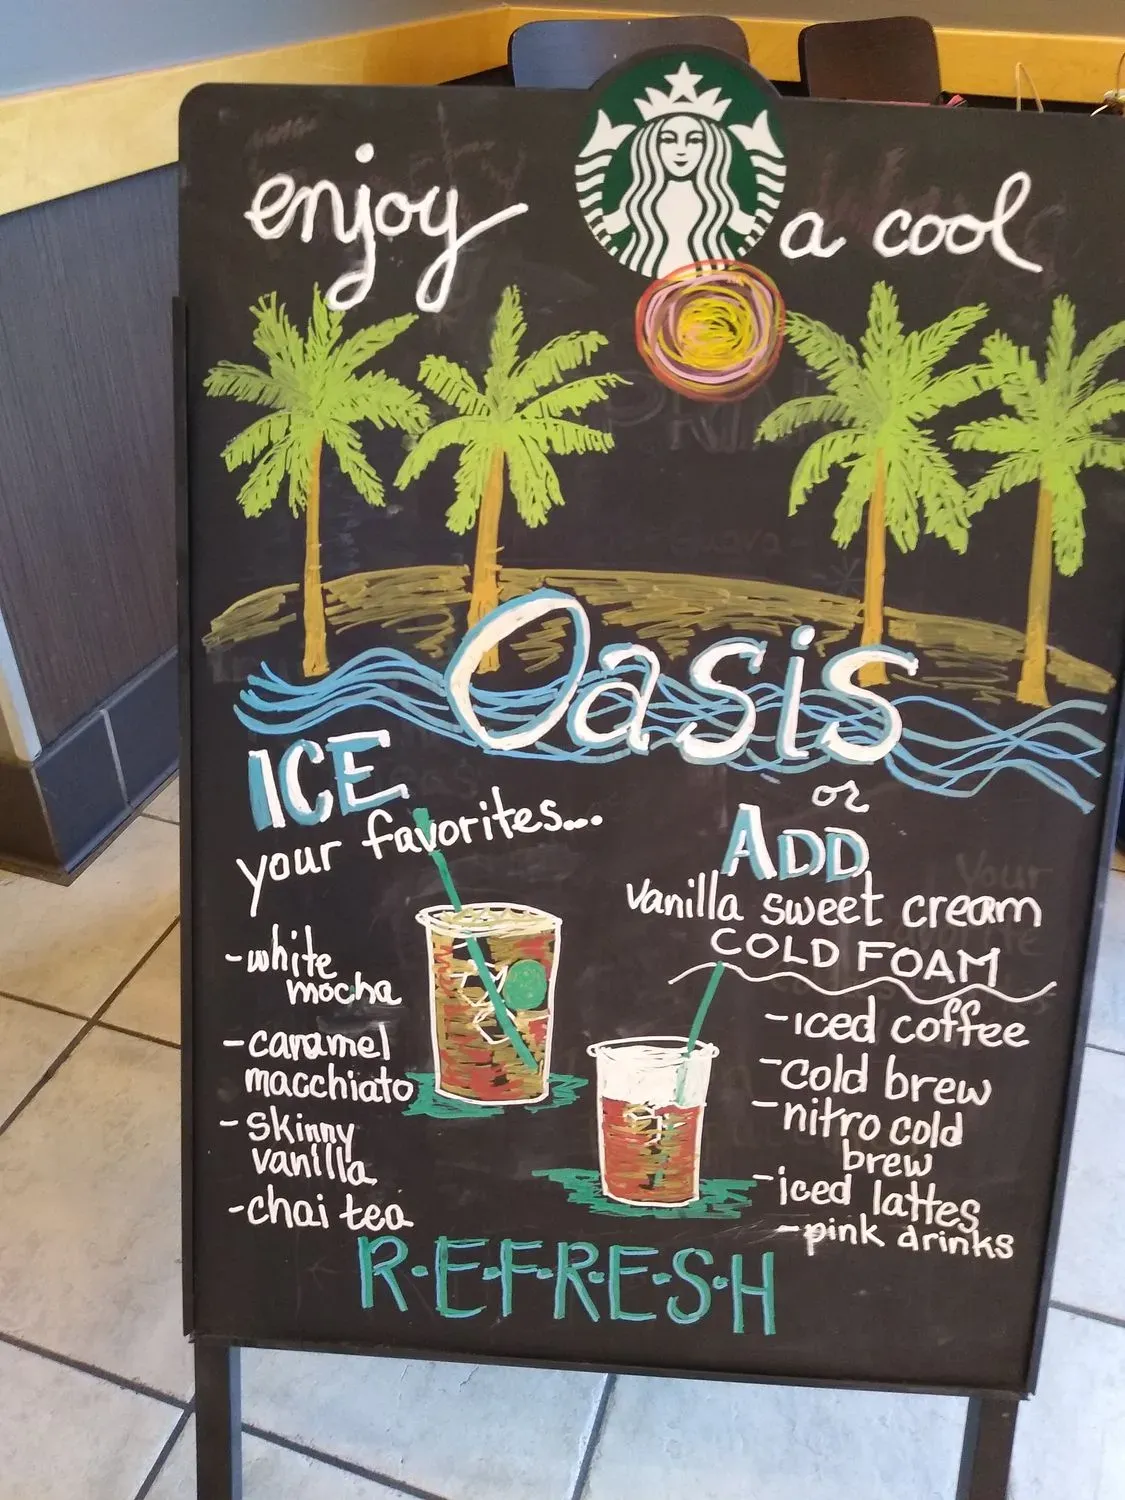 enjoy a cool
Oasis
ICE
your favorites...
-white
mocha
-caramel
macchiato
-skinny
vanilla
-chai tea
or
ADD
vanilla sweet cream
COLD FOAM
-iced coffee
-cold brew
-nitro cold
brew
-iced lattes
-pink drinks
R·E·F·R·E·S·H